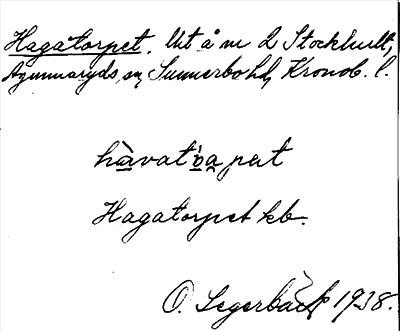 Hagatorpet. Utå m 2 Stockhult,
Agunnaryds sn, Sunnerbo hd, Kronob. l.
hàvatᵒ̀a̯pət
Hagatorpet kb.
O. Segerbäck 1938.